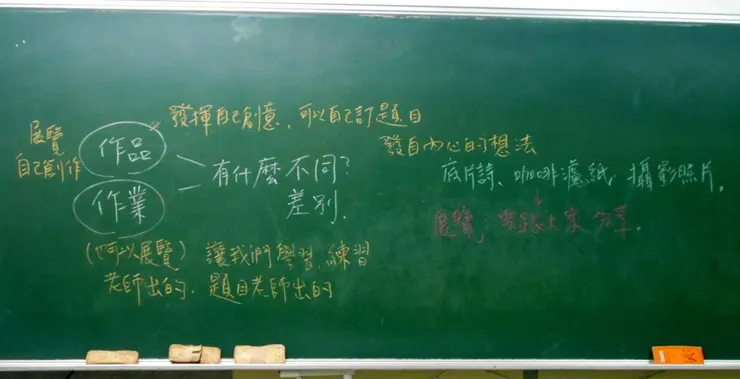 發揮自己創意、可以自己訂題目
展覽
自己創作
作品
發自內心的想法
有什麼不同?
差別.
底片詩、咖啡濾紙、攝影照片。
作業
展覽, 要跟大家分享.
(可以展覽) 讓我們學習、練習
老師出的、題目老師出的